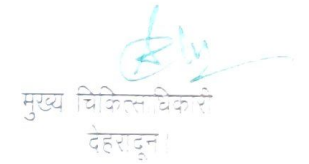 मुख्य चिकित्साधिकारी
देहरादून।